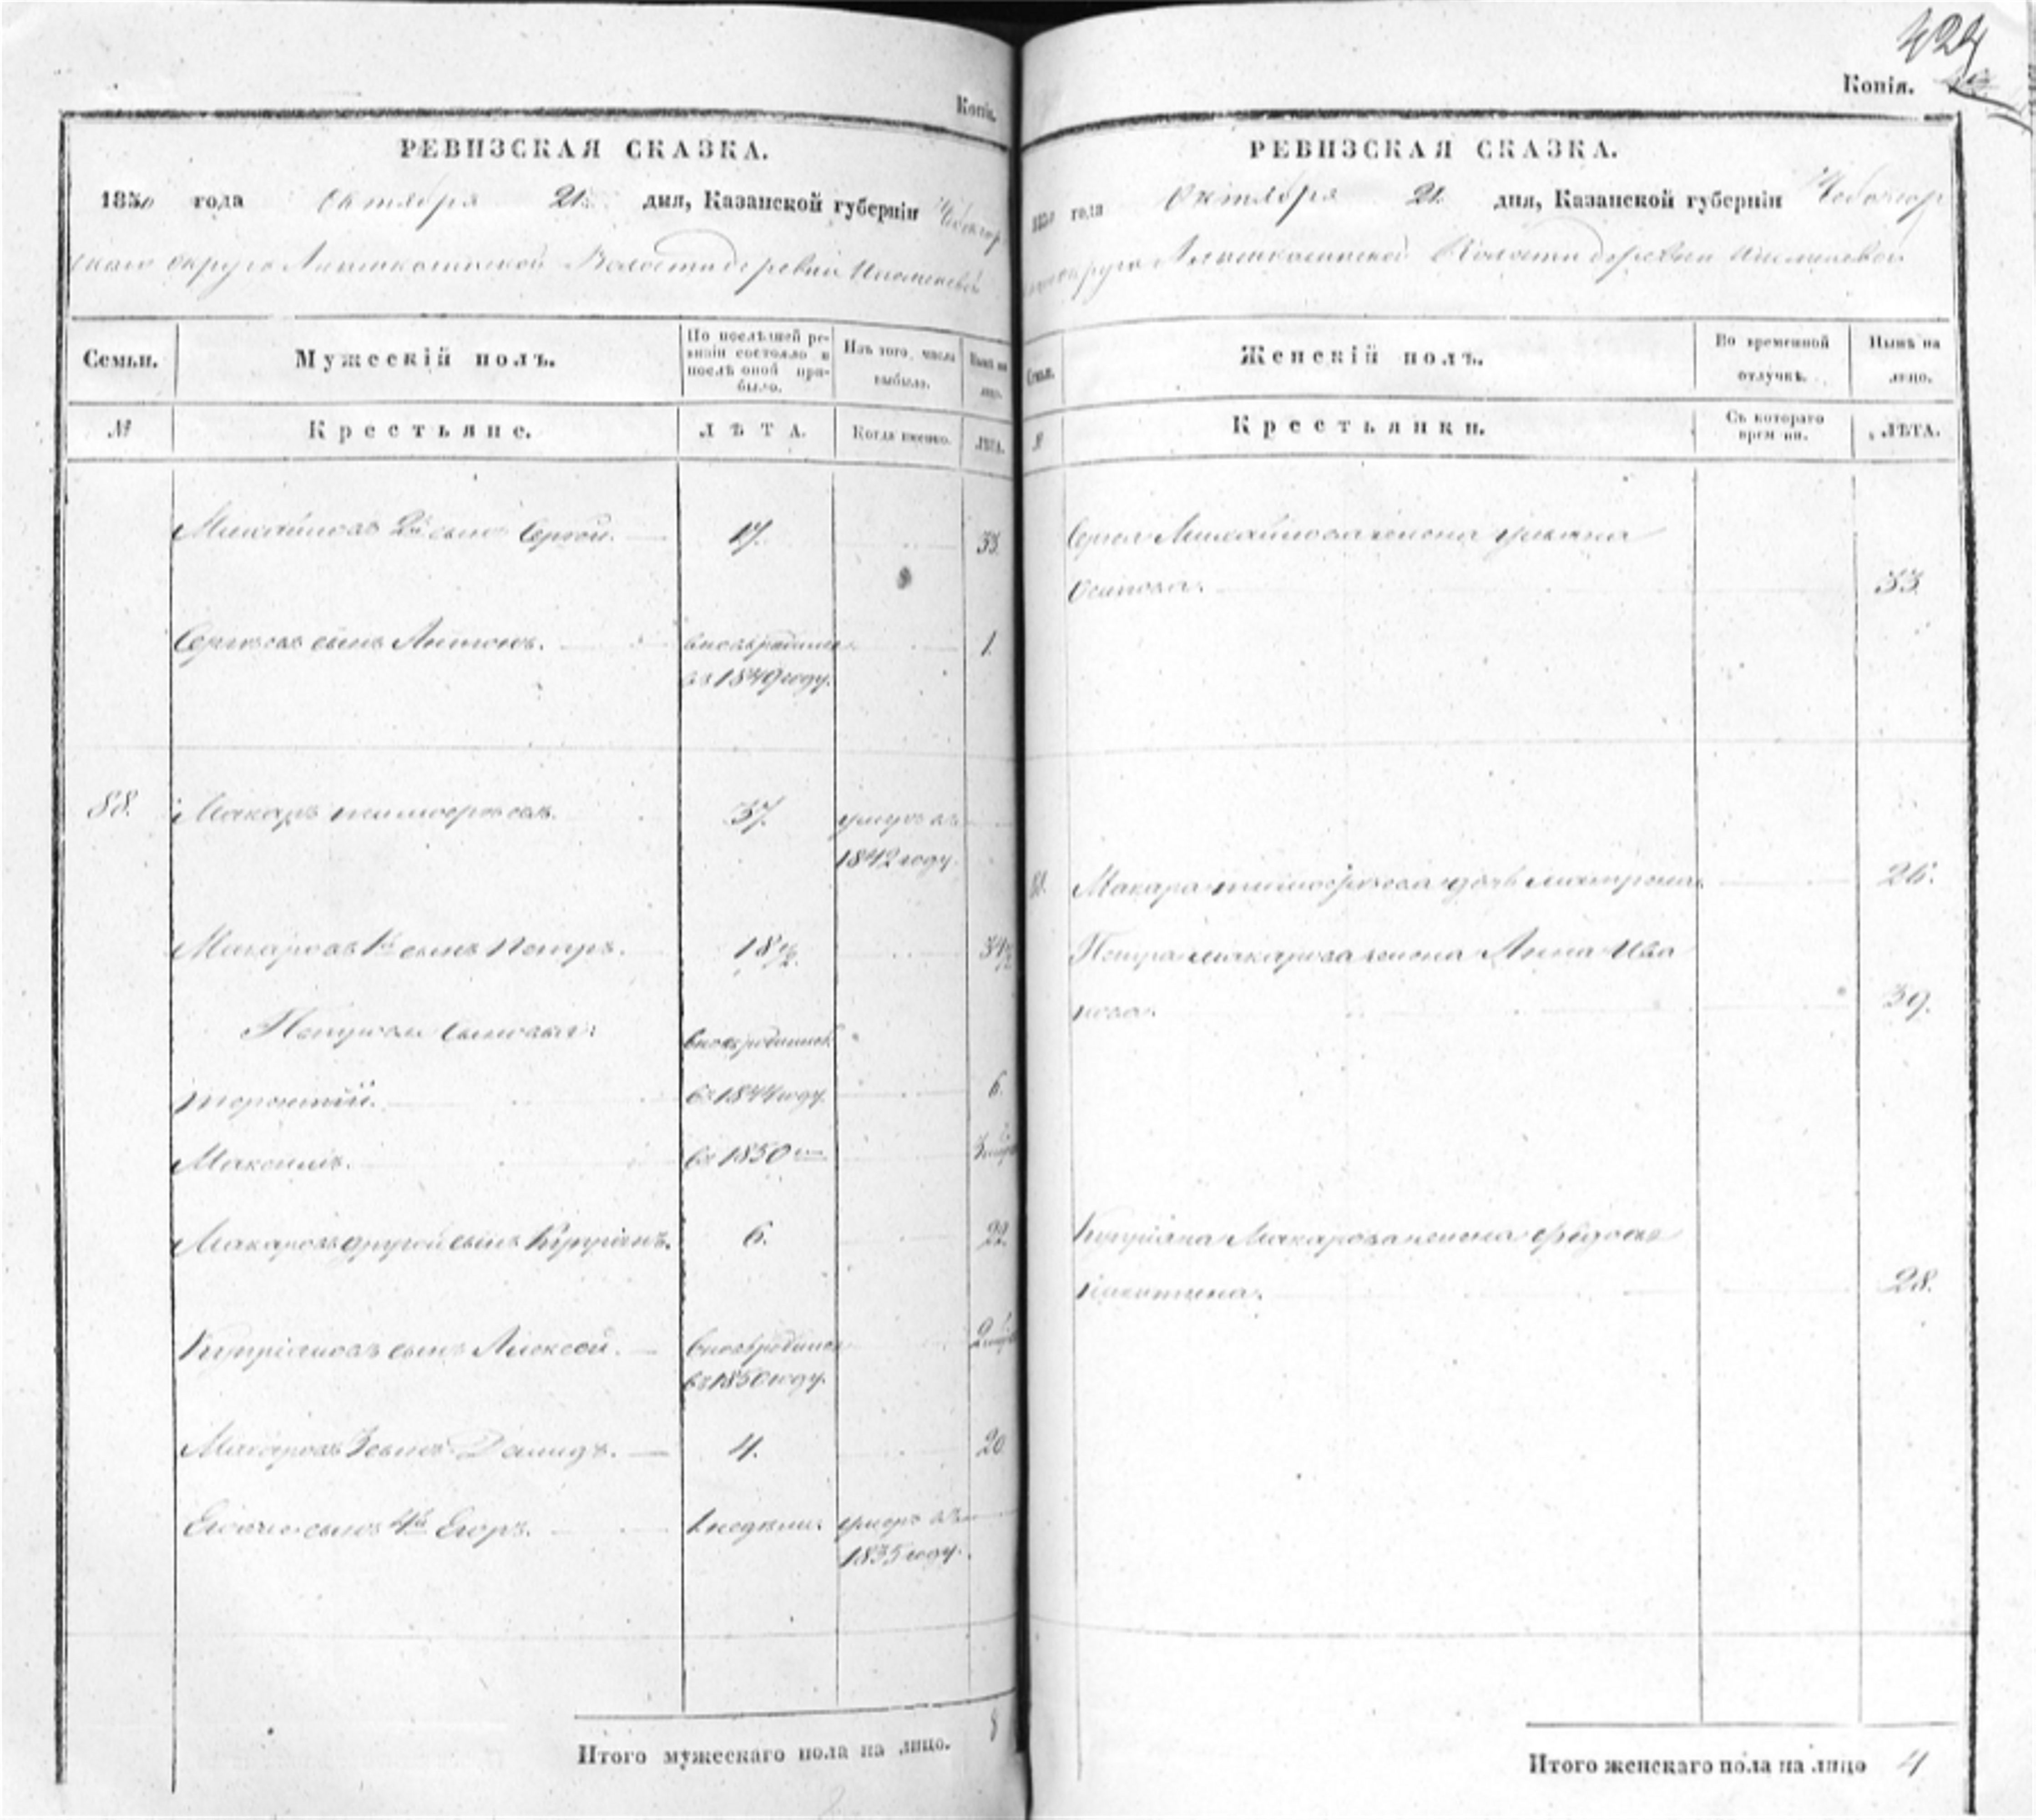 Копія.
РЕВИЗСКАЯ СКАЗКА.
1850 года Октября 21 дня, Казанской губерніи Чебоксар
скаго округа Волости деревни
Семьи.
Мужескій полъ.
По послѣдней ре-
визіи состояло и
послѣ оной при-
было.
Изъ того числа
выбыло.
Нынѣ на
лицо.
№
Крестьяне.
ЛѢТА.
Когда именно.
ЛѢТА.
Михайловъ 2й сынъ Сергѣй. 17. 33.
Сергѣевъ сынъ Антонъ. вновьрожденъ 1.
въ 1849 году.
88. Макаръ Тимофѣевъ. 37. умеръ въ
1842 году.
Макаровъ 1й сынъ Петръ. 18 1/2. 34 1/2
Петровы сыновья: вновьрожденный
въ 1844 году. 6.
Максимъ. въ 1850 3
Макаровъ другой сынъ Купріянъ. 6. 22.
Купріяновъ сынъ Алексѣй. вновьрожденъ 2
въ 1850 году.
Макаровъ 3 сынъ Демидъ. 4. 20
Егоже сынъ 4й Егоръ. 1 недѣли. умеръ въ
1835 году.
Итого мужескаго пола на лицо. 8
424
Копія.
РЕВИЗСКАЯ СКАЗКА.
1850 года Октября 21. дня, Казанской губерніи Чебоксар
скаго округа Волости деревни
Семьи.
Женскій полъ.
Во временной
отлучкѣ.
Нынѣ на
лицо.
№
Крестьянки.
Съ котораго
времени.
ЛѢТА.
Сергея Михайлова жена Ульяна
Осипова. 33.
88. Макара Тимофѣева дочь Матрона. 26.
Петра Макарова жена Анна Ива
нова. 39.
Купріяна Макарова жена Федосья
Никитина. 28.
Итого женскаго пола на лицо 4